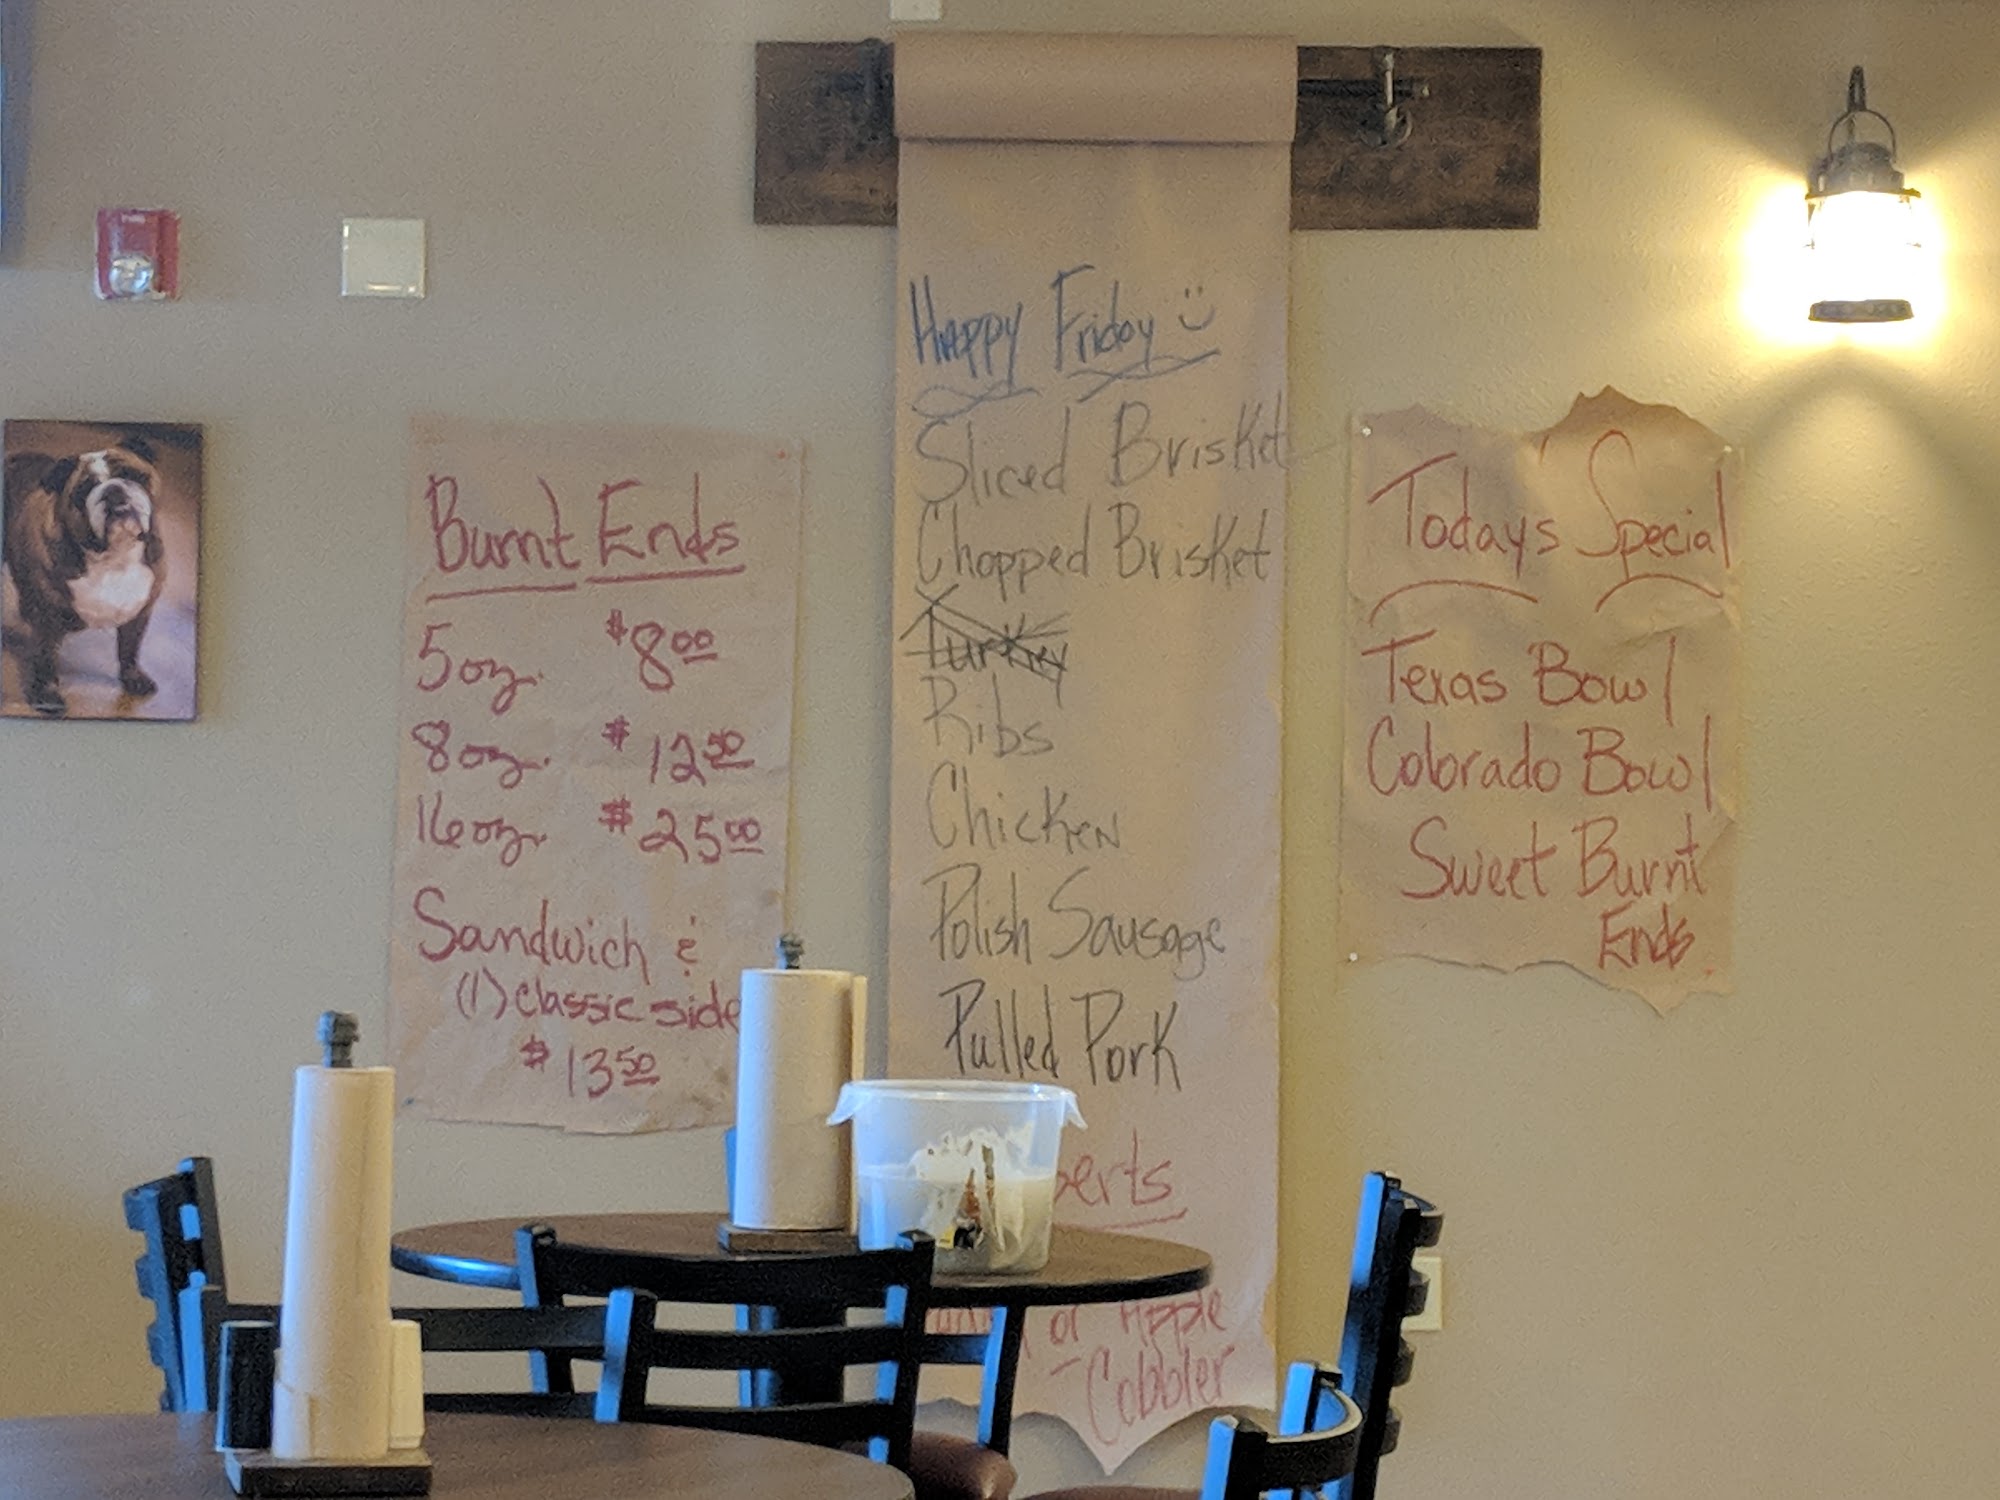 Burnt Ends
5oz. $8.00
8oz. $12.50
16oz. $25.00
Sandwich &
(1) classic side
$13.50
Happy Friday
Sliced Brisket
Chopped Brisket
Turkey
Ribs
Chicken
Polish Sausage
Pulled Pork
or Apple
Cobbler
Today's Special
Texas Bowl
Colorado Bowl
Sweet Burnt
Ends